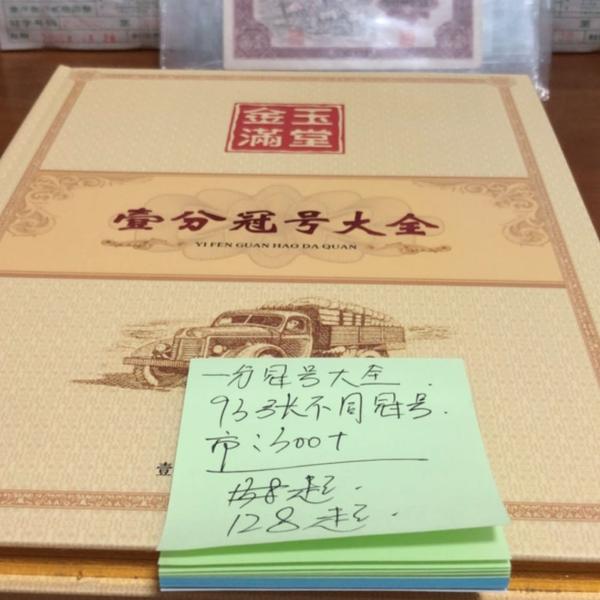 金玉
滿堂
壹分冠号大全
YI FEN GUAN HAO DA QUAN
一分冠号大全.
93张不同冠号.
市:300+
138起.
128起.
壹